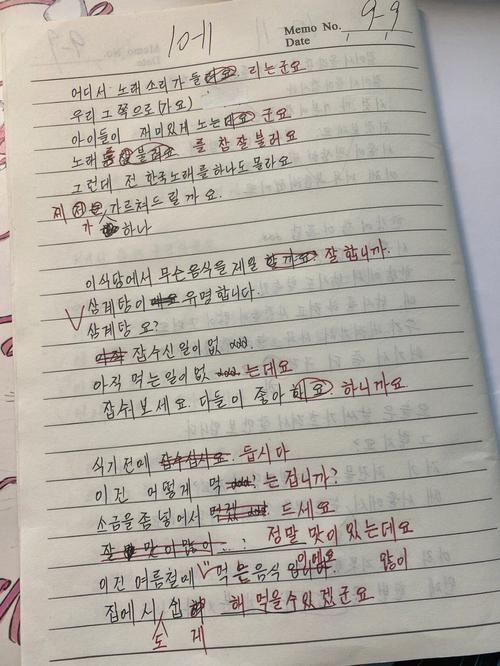 10-11
Memo No. 9-9
Date
어디서 노래 소리가 들려요. 리는군요
우리 그쪽으로 (가요)
아이들이 재미있게 노는데요 군요
노래를 잘 불러요 를 참 잘 불러요
그런데 전 한국노래를 하나도 몰라요
제 가르쳐드릴까요.
가 하나
이식당에서 무슨음식을 제일 할까요? 잘 합니까.
삼계탕이 유명합니다.
삼계탕 요?
잡수신일이 없
아직 먹는일이 없 는데요
잡숴보세요. 다들이 좋아해요. 하니까요
식기전에 잡수십시요. 듭시다
이건 어떻게 먹 는겁니까?
소금을 좀 넣어서 먹겠 드세요
잘 맛이많이...: 정말 맛이 있는데요
이건 여름철에 먹는음식 이에요 많이
집에서 쉽 해 먹을수있겠군요
도 게